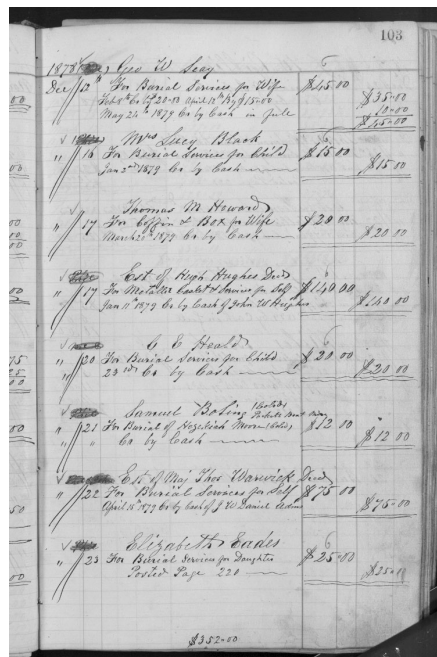 103
1878 Geo W. Seay
Dec 12 For Burial Services for Wife $45.00
Feb 8th Cr By 20-00 April 12th By $15-00 $35-00
May 24th 1879 Cr by Cash in full 10-00
$45-00
Mrs Lucy Black
" 16 For Burial Services for Child $15 00
Jan 2nd 1879 Cr by Cash $15 00
Thomas M Howard
" 17 For Coffin & Box for Wife $20 00
March 20th 1879 Cr by Cash $20 00
Est of Hugh Hughes Decd
" 17 For Metallic Casket & Services for Self $140 00
Jan 11th 1879 Cr by Cash of John W Hughes $140 00
C E Heald
" 20 For Burial Services for Child $20 00
23rd Cr by Cash $20 00
Samuel Boling (Cold)
" 21 For Burial of Hezekiah Moore (Cold) $12 00
" " Cr by Cash $12 00
Est of Maj Thos Warwick Decd
" 22 For Burial Services for Self $75 00
April 15 1879 Cr by Cash of J W Daniel $75-00
Elizabeth Eades
" 23 For Burial Services for Daughter $25-00
Posted Page 220 $25-00
$352-00